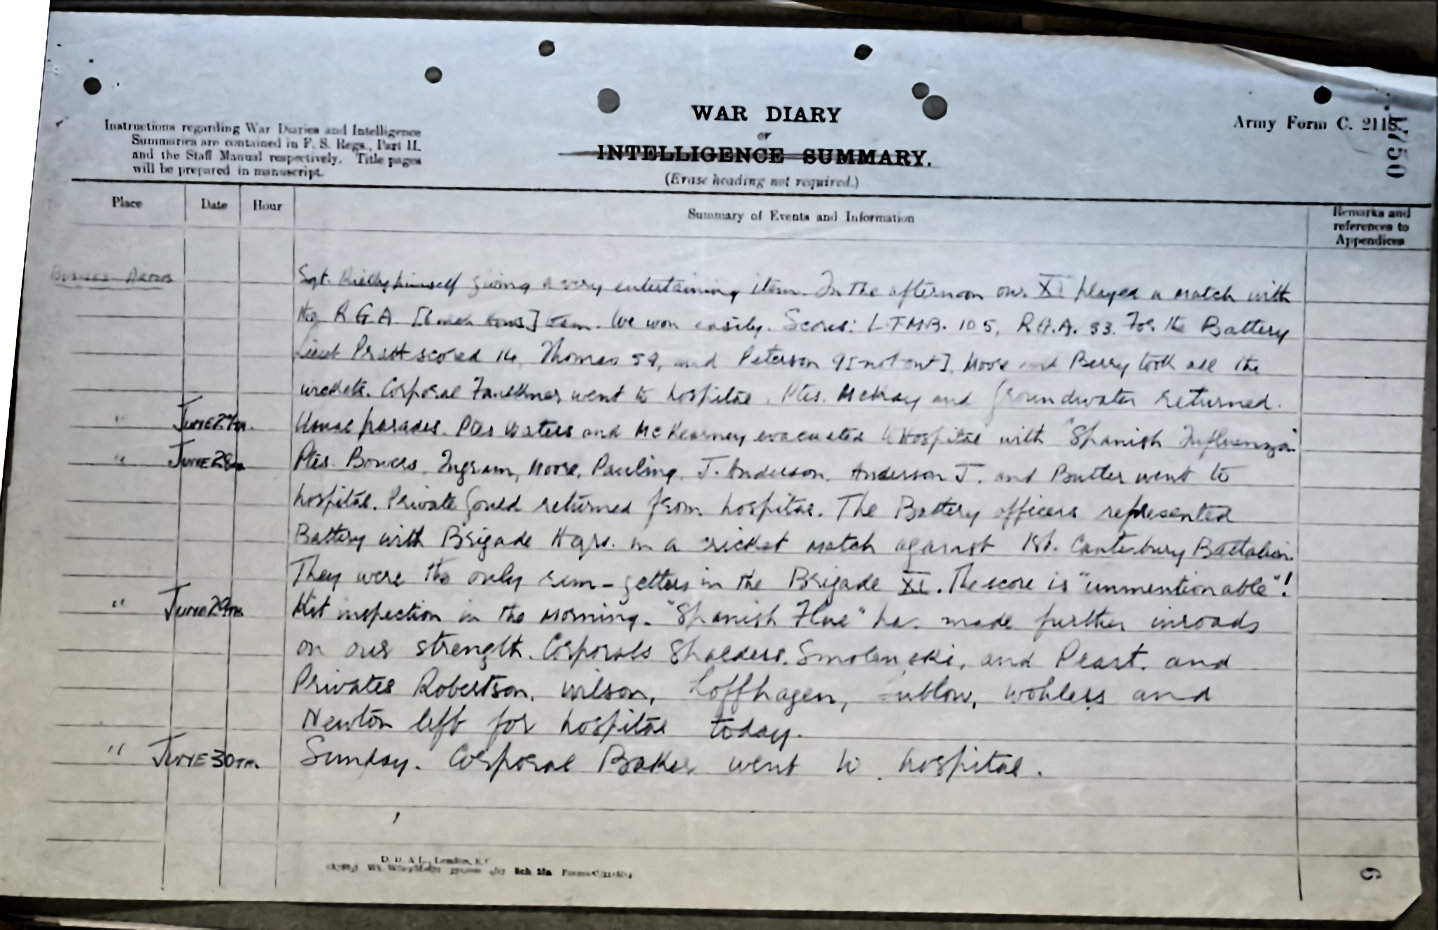 Instructions regarding War Diaries and Intelligence
Summaries are contained in F. S. Regs., Part II.
and the Staff Manual respectively. Title pages
will be prepared in manuscript.
WAR DIARY
or
INTELLIGENCE SUMMARY.
(Erase heading not required.)
Army Form C. 2118.
1750
Place Date Hour Summary of Events and Information Remarks and
references to
Appendices
Sgt. himself giving a very entertaining item. In the afternoon our XI played a match with
R.G.A. team. We won easily. Scores: L.T.M.B. 105, R.G.A. 53. For the Battery
Lieut Pratt scored 14, Thomas 59, and Peterson 9 [not out]. Moore and Berry took all the
wickets. Corporal Faulkner went to hospital. Ptes. McKay and Groundwater returned.
" June 27th. Usual parades. Ptes Waters and McKearney evacuated to Hospital with "Spanish Influenza"
" June 28th Ptes. Bowers, Ingram, Moore, Pauling, J. Anderson, Anderson J. and Butler went to
hospital. Private Gould returned from hospital. The Battery officers represented
Battery with Brigade Hqrs. in a cricket match against 1st. Canterbury Battalion.
They were the only run-getters in the Brigade XI. The score is "unmentionable"!
" June 29th Kit inspection in the morning. "Spanish Flue" has made further inroads
on our strength. Corporals Shaeders, Smolenski, and Peart, and
Privates Robertson, Wilson, Loffhagen, Wohlers and
Newton left for hospital today.
" June 30th. Sunday. Corporal Baker went to hospital.
D. D. & L., London, E.C.
Sch 52a
6